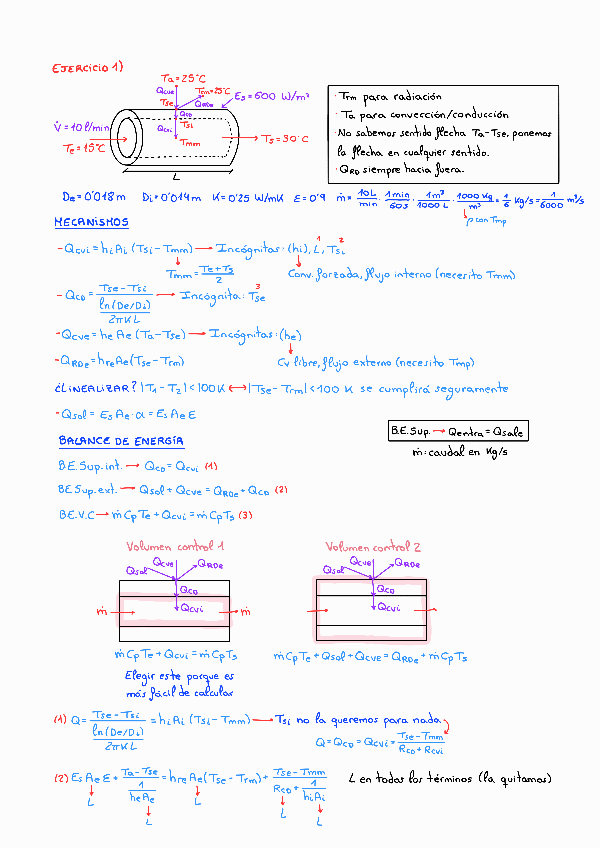 EJERCICIO 1)
Ta = 25°C
Qcve Trm = 25°C
Tse QRDe Es = 600 W/m²
QCD
Tsi
Qcvi
Tmm
V̇ = 10 l/min
Te = 15°C
Ts = 30°C
L
· Trm para radiación
· Ta para convección/conducción
· No sabemos sentido flecha Ta-Tse, ponemos
la flecha en cualquier sentido.
· QRD siempre hacia fuera.
De = 0'018m Di = 0'014m K = 0'25 W/mK E = 0'9 ṁ = 10L/min · 1min/60s · 1m³/1000L · 1000Kg/m³ = 1/6 Kg/s = 1/6000 m³/s
ρ con Tmp
MECANISMOS
- Qcvi = hi Ai (Tsi - Tmm) → Incógnitas: (hi), L, Tsi
1 2
Tmm = (Te + Ts)/2
Conv. forzada, flujo interno (necesito Tmm)
- QCD = (Tse - Tsi)/(ln(De/Di)/2πKL) → Incógnita: Tse
3
- Qcve = he Ae (Ta - Tse) → Incógnitas: (he)
- QRDe = hre Ae (Tse - Trm)
Cv libre, flujo externo (necesito Tmp)
¿LINEALIZAR? |T1 - T2| < 100K ↔ |Tse - Trm| < 100 K se cumplirá seguramente
- Qsol = Es Ae · α = Es Ae E
B.E. Sup. → Qentra = Qsale
ṁ: caudal en Kg/s
BALANCE DE ENERGÍA
B.E. Sup. int. → QCD = Qcvi (1)
B.E. Sup. ext. → Qsol + Qcve = QRDe + QCD (2)
B.E. V.C → ṁ Cp Te + Qcvi = ṁ Cp Ts (3)
Volumen control 1
Qcve
Qsol QRDe
QCD
Qcvi
ṁ ṁ
ṁ Cp Te + Qcvi = ṁ Cp Ts
Elegir este porque es
más fácil de calcular
Volumen control 2
Qcve
Qsol QRDe
QCD
Qcvi
ṁ Cp Te + Qsol + Qcve = QRDe + ṁ Cp Ts
(1) Q = (Tse - Tsi)/(ln(De/Di)/2πKL) = hi Ai (Tsi - Tmm) → Tsi no la queremos para nada
Q = QCD = Qcvi = (Tse - Tmm)/(RCD + Rcvi)
(2) Es Ae E + (Ta - Tse)/(1/he Ae) = hre Ae (Tse - Trm) + (Tse - Tmm)/(RCD + 1/hi Ai) L en todos los términos (la quitamos)
L L L L L